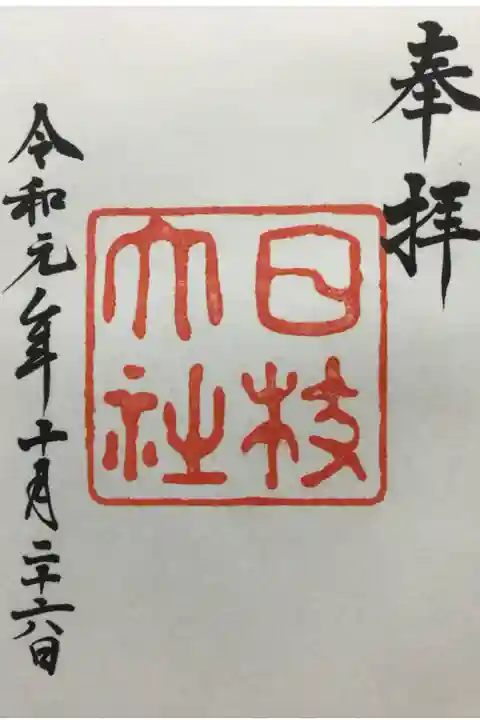 奉拝
日枝
大社
令和元年十月二十六日